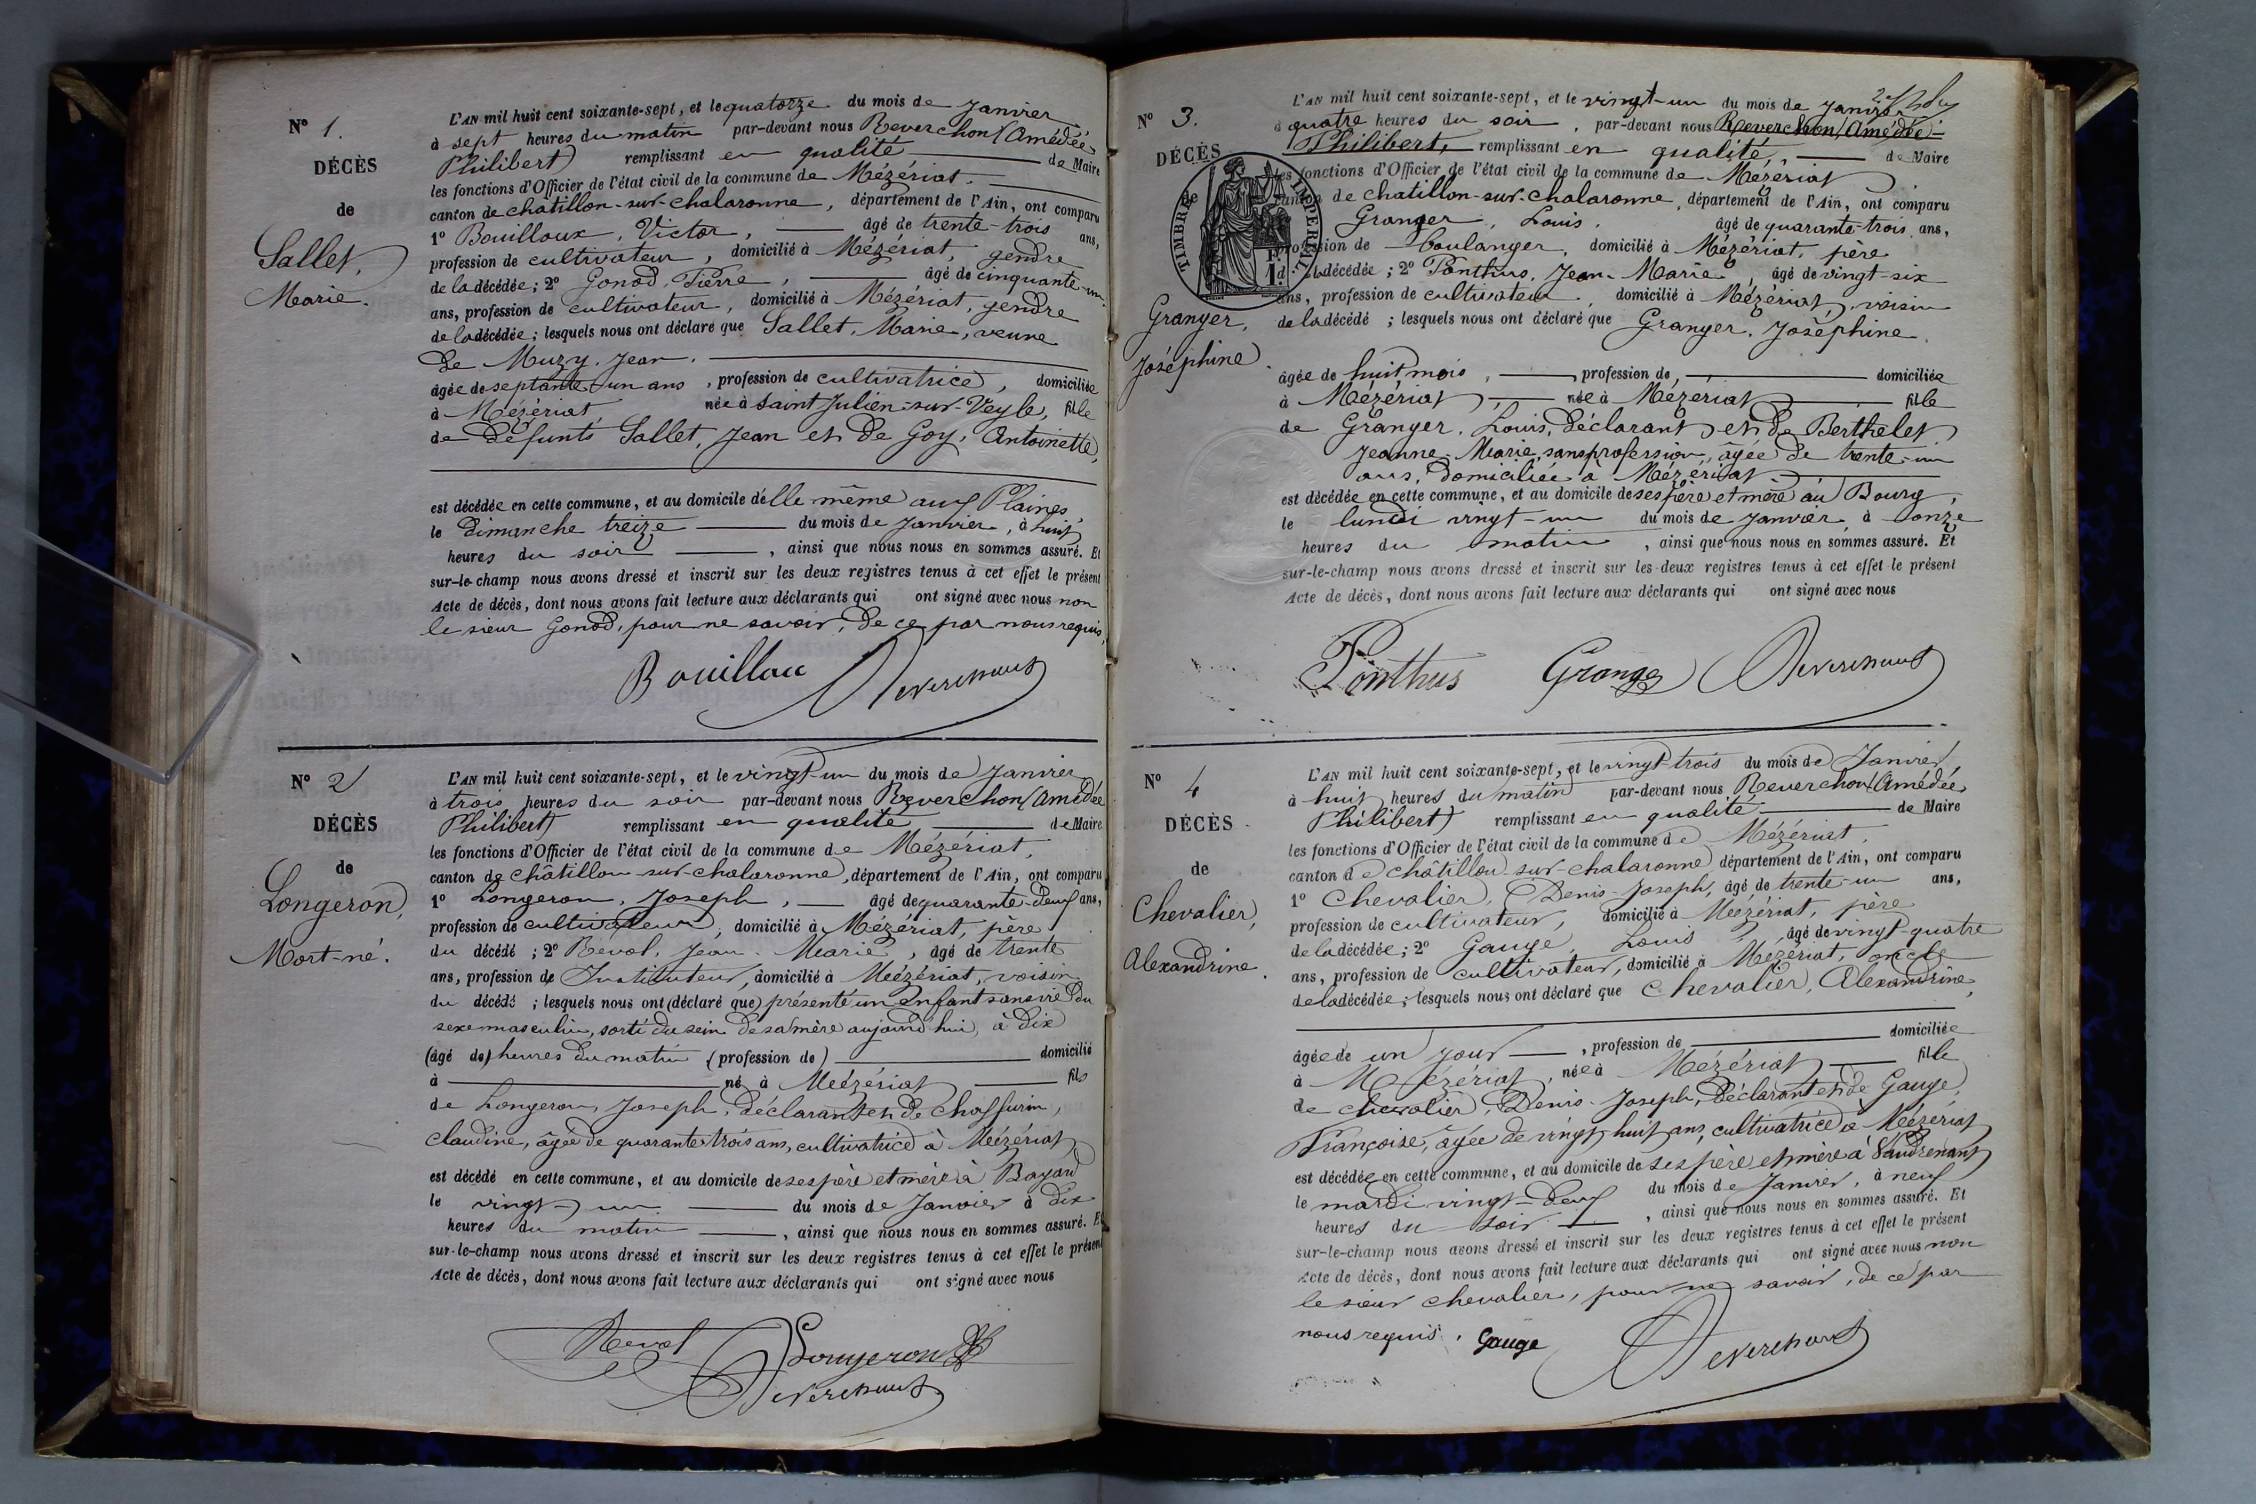 N° 1.
DÉCÈS
de
Sallet,
Marie.
L'AN mil huit cent soixante-sept, et le quatorze du mois de Janvier
à sept heures du matin par-devant nous Reverchon (Amédée
Philibert) remplissant en qualité de Maire
les fonctions d'Officier de l'état civil de la commune de Mézériat.
canton de châtillon-sur-chalaronne, département de l'Ain, ont comparu
1° Bouilloux, Victor, âgé de trente-trois ans,
profession de cultivateur, domicilié à Mézériat, gendre
de la décédée; 2° Gonod, Pierre, âgé de cinquante-un
ans, profession de cultivateur, domicilié à Mézériat, gendre
de la décédée; lesquels nous ont déclaré que Sallet, Marie, veuve
de Muzy, Jean.
âgée de septante-un ans, profession de cultivatrice, domiciliée
à Mézériat née à Saint Julien-sur-Veyle, fille
de défunts Sallet, Jean et de Goy, Antoinette,
est décédée en cette commune, et au domicile d'elle même aux Plaines,
le dimanche treize du mois de Janvier, à huit
heures du soir, ainsi que nous nous en sommes assuré. Et
sur-le-champ nous avons dressé et inscrit sur les deux registres tenus à cet effet le présent
Acte de décès, dont nous avons fait lecture aux déclarants qui ont signé avec nous non
le sieur Gonod, pour ne savoir, de ce par nous requis,
Bouilloux Reverchon
N° 2
DÉCÈS
de
Longeron,
Mort-né.
L'AN mil huit cent soixante-sept, et le vingt-un du mois de Janvier
à trois heures du soir par-devant nous Reverchon (Amédée
Philibert) remplissant en qualité de Maire
les fonctions d'Officier de l'état civil de la commune de Mézériat,
canton de châtillon-sur-chalaronne, département de l'Ain, ont comparu
1° Longeron, Joseph, âgé de quarante-deux ans,
profession de cultivateur, domicilié à Mézériat, père
du décédé; 2° Revol, Jean-Marie, âgé de trente
ans, profession de Instituteur, domicilié à Mézériat, voisin
du décédé; lesquels nous ont (déclaré que) présenté un enfant sans vie du
sexe masculin, sorti du sein de sa mère aujourd'hui, à dix
(âgé de) heures du matin (profession de) domicilié
à né à Mézériat fils
de Longeron, Joseph, déclarant et de Chaffurin,
Claudine, âgée de quarante trois ans, cultivatrice à Mézériat
est décédé en cette commune, et au domicile de ses père et mère à Bayard
le vingt-un du mois de Janvier à dix
heures du matin, ainsi que nous nous en sommes assuré. Et
sur-le-champ nous avons dressé et inscrit sur les deux registres tenus à cet effet le présent
Acte de décès, dont nous avons fait lecture aux déclarants qui ont signé avec nous
Revol Longeron
Reverchon
N° 3.
DÉCÈS
TIMBRE IMPERIAL
1 F. d.
Granger,
Joséphine.
L'AN mil huit cent soixante-sept, et le vingt-un du mois de Janvier
à quatre heures du soir, par-devant nous Reverchon (Amédée-
Philibert, remplissant en qualité, de Maire
les fonctions d'Officier de l'état civil de la commune de Mézériat
canton de chatillon-sur-chalaronne, département de l'Ain, ont comparu
Granger, Louis, âgé de quarante-trois ans,
profession de boulanger, domicilié à Mézériat, père
de la décédée; 2° Ponthus, Jean-Marie, âgé de vingt-six
ans, profession de cultivateur, domicilié à Mézériat, voisin
de la décédé; lesquels nous ont déclaré que Granger, Joséphine,
âgée de huit mois, profession de, domiciliée
à Mézériat, née à Mézériat fille
de Granger, Louis, déclarant et de Berthelet
Jeanne-Marie, sans profession, âgée de trente-un
ans, domiciliée à Mézériat
est décédée en cette commune, et au domicile de ses père et mère au Bourg,
le lundi vingt-un du mois de Janvier à onze
heures du matin, ainsi que nous nous en sommes assuré. Et
sur-le-champ nous avons dressé et inscrit sur les deux registres tenus à cet effet le présent
Acte de décès, dont nous avons fait lecture aux déclarants qui ont signé avec nous
Ponthus Granger Reverchon
N° 4
DÉCÈS
de
Chevalier,
Alexandrine.
L'AN mil huit cent soixante-sept, et le vingt-trois du mois de Janvier,
à huit heures du matin par-devant nous Reverchon (Amédée
Philibert) remplissant en qualité de Maire
les fonctions d'Officier de l'état civil de la commune de Mézériat,
canton de châtillon-sur-chalaronne, département de l'Ain, ont comparu
1° Chevalier, Denis-Joseph, âgé de trente-un ans,
profession de cultivateur, domicilié à Mézériat, père
de la décédée; 2° Gauge, Louis, âgé de vingt-quatre
ans, profession de cultivateur, domicilié à Mézériat, oncle
de la décédée; lesquels nous ont déclaré que Chevalier, Alexandrine,
âgée de un jour, profession de domiciliée
à Mézériat, née à Mézériat fille
de Chevalier, Denis-Joseph, déclarant et de Gauge,
Françoise, âgée de vingt huit ans, cultivatrice à Mézériat
est décédée en cette commune, et au domicile de ses père et mère à Vaudrenant
le mardi vingt-deux du mois de Janvier, à neuf
heures du soir, ainsi que nous nous en sommes assuré. Et
sur-le-champ nous avons dressé et inscrit sur les deux registres tenus à cet effet le présent
Acte de décès, dont nous avons fait lecture aux déclarants qui ont signé avec nous non
le sieur Chevalier, pour ne savoir, de ce par
nous requis. Gauge Reverchon